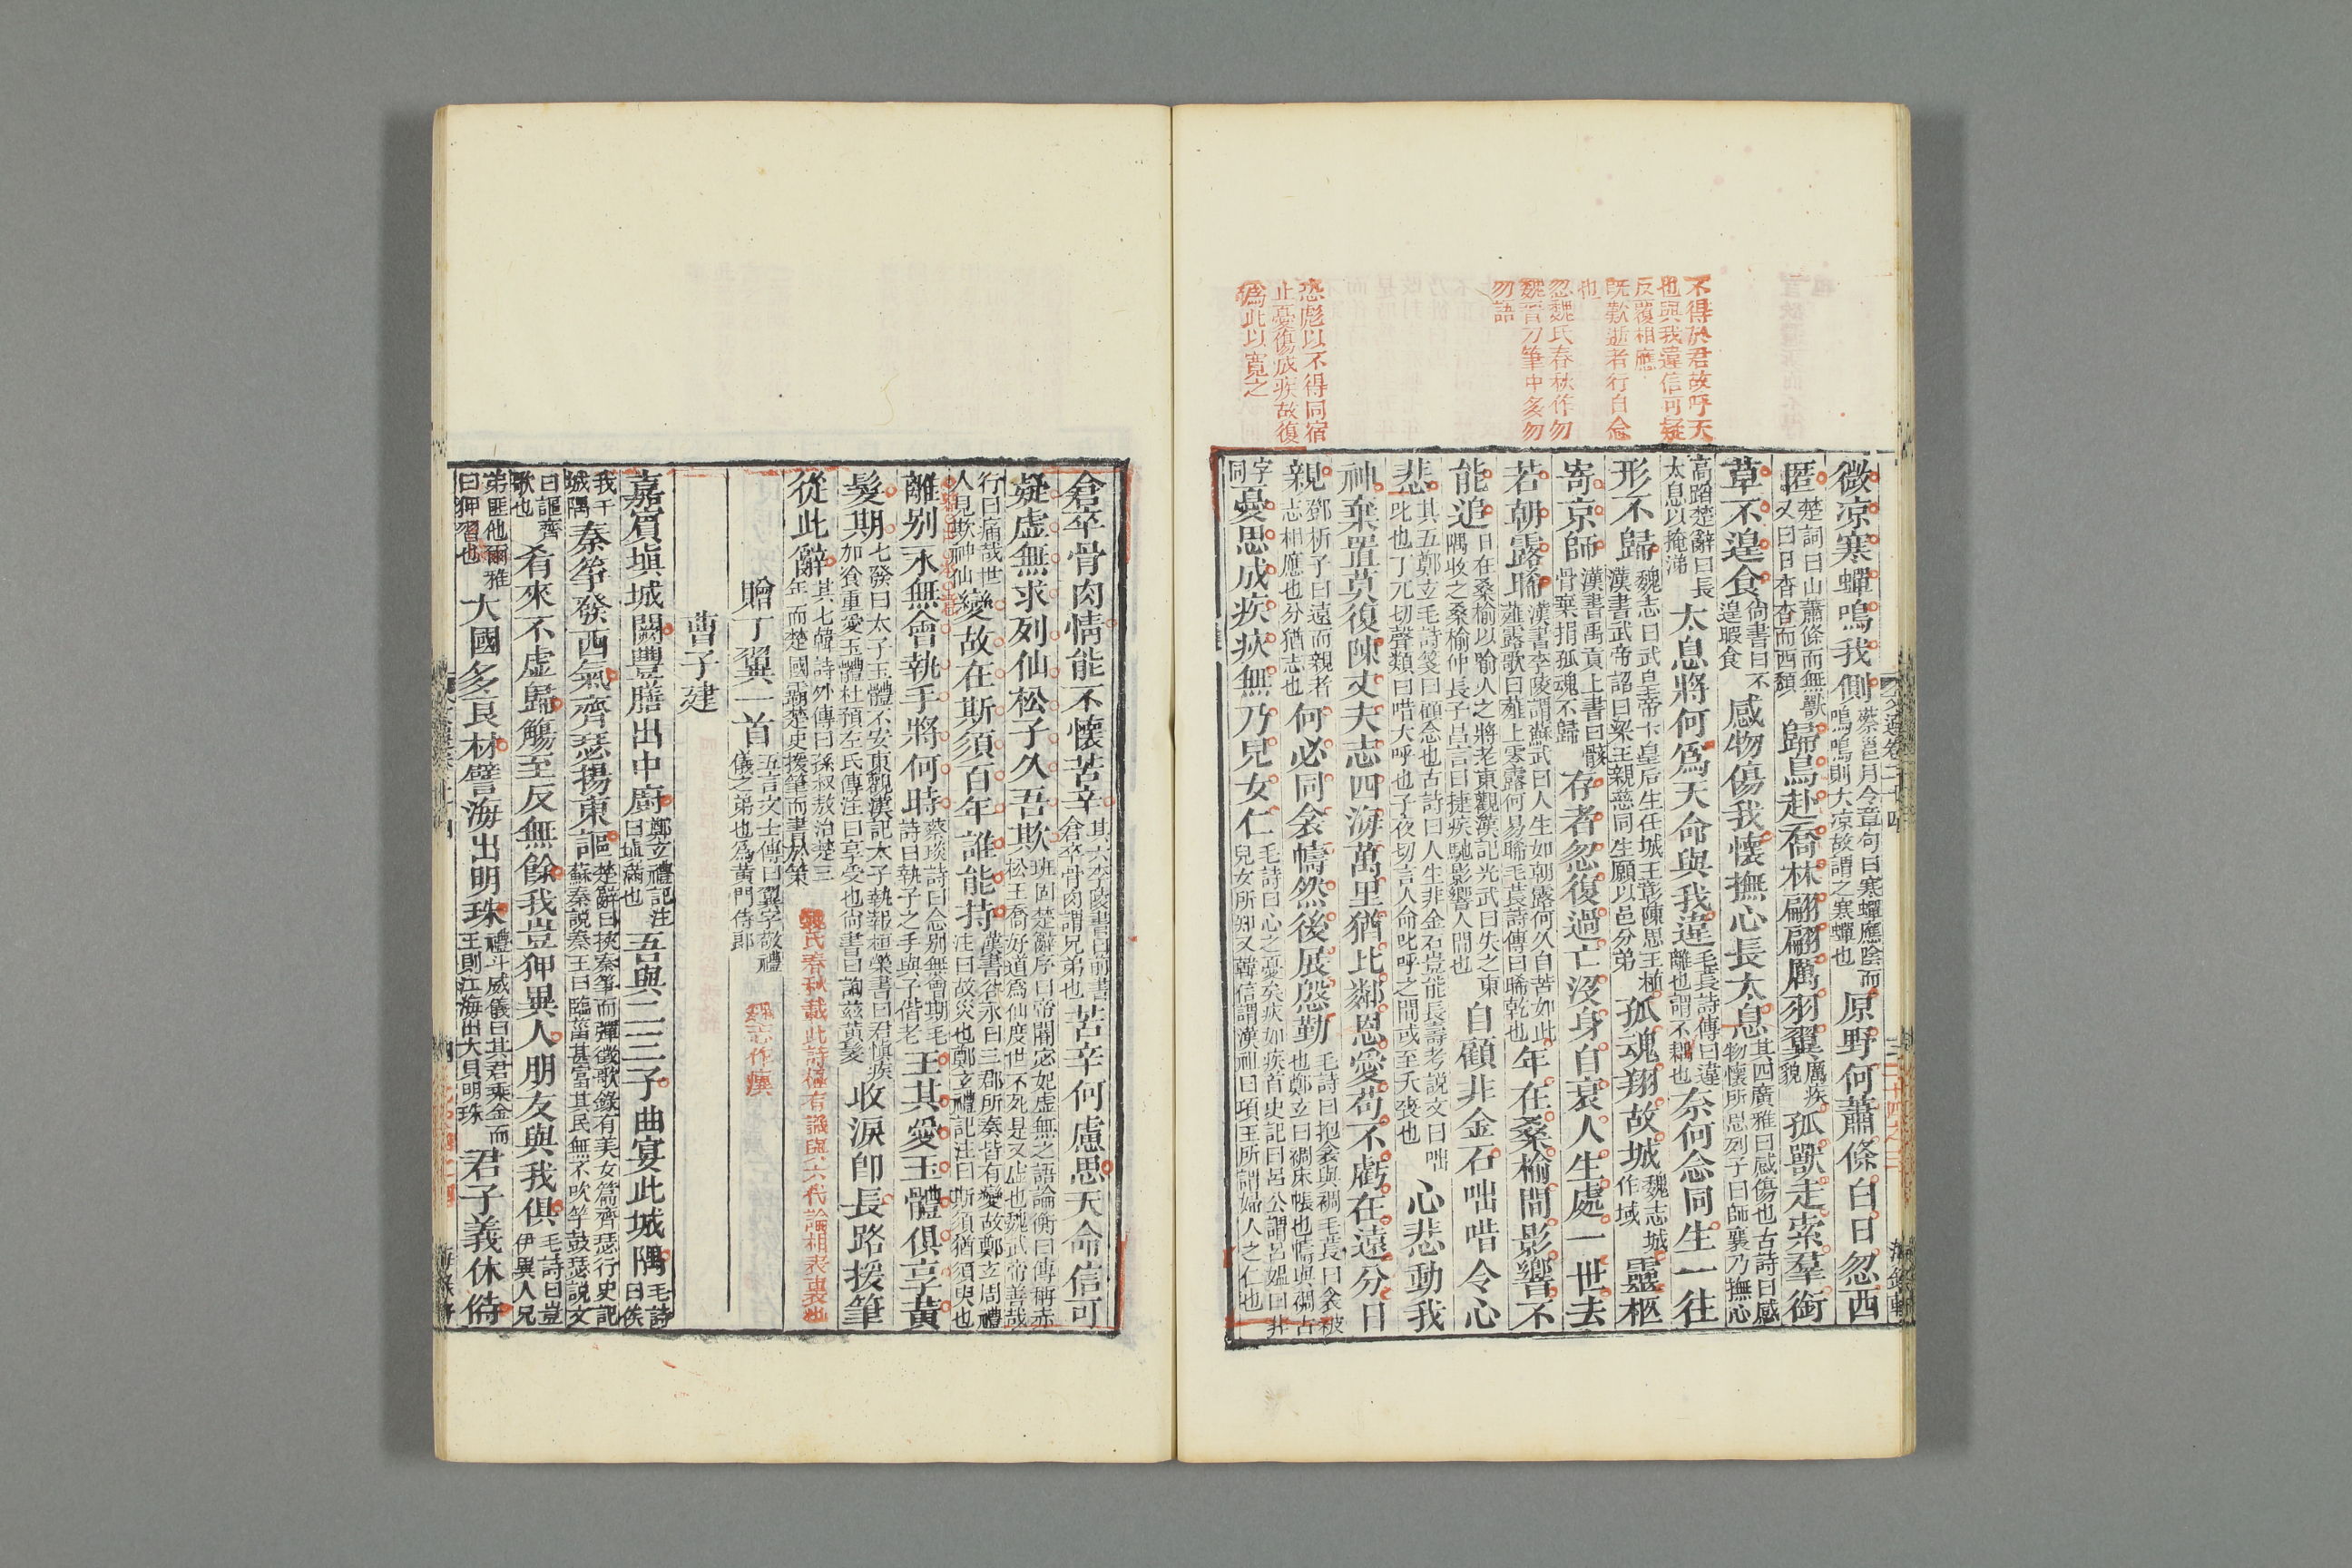 不得於君故呼天
也與我違信可疑
反覆相應
既歎逝者行自念
也
忽魏氏春秋作勿
魏晋刀筆中多勿
勿語
恐彪以不得同宿
止憂傷成疾故復
爲此以寬之
微凉寒蟬鳴我側蔡邕月令章句曰寒蟬應陰而鳴鳴則大凉故謂之寒蟬也原野何蕭條白日忽西
匿楚詞曰山蕭條而無獸又曰日杳杳而西頹歸鳥赴喬林翩翩厲羽翼厲疾貌孤獸走索羣銜
草不遑食尚書曰不遑暇食感物傷我懷撫心長太息其四廣雅曰感傷也古詩曰感物懷所思列子曰師襄乃撫心
高蹈楚辭曰長太息以掩涕太息將何爲天命與我違毛萇詩傳曰違離也謂不耦也奈何念同生一往
形不歸魏志曰武皇帝卞皇后生任城王彰陳思王植漢書武帝詔曰梁王親慈同生願以邑分弟孤魂翔故城魏志城作域靈柩
寄京師漢書禹貢上書曰骸骨棄捐孤魂不歸存者忽復過亡沒身自衰人生處一世去
若朝露晞漢書李陵謂蘇武曰人生如朝露何久自苦如此薤露歌曰薤上零露何易晞毛萇詩傳曰晞乾也年在桑榆間影響不
能追日在桑榆以喻人之將老東觀漢記光武曰失之東隅收之桑榆仲長子昌言曰捷疾馳影響人間也自顧非金石咄唶令心
悲其五鄭玄毛詩箋曰顧念也古詩曰人生非金石豈能長壽考說文曰咄叱也丁兀切聲類曰唶大呼也子夜切言人命叱呼之間或至夭喪也心悲動我
神棄置莫復陳丈夫志四海萬里猶比鄰恩愛苟不虧在遠分日
親鄧析子曰遠而親者志相應也分猶志也何必同衾幬然後展慇勤毛詩曰抱衾與裯毛萇曰衾被也鄭玄曰裯床帳也幬與裯古
字同憂思成疾疢無乃兒女仁毛詩曰心之憂矣疢如疾首史記曰呂公謂呂媼曰非兒女所知又韓信謂漢祖曰項王所謂婦人之仁也
倉卒骨肉情能不懷苦辛其六李陵書曰前書倉卒骨肉謂兄弟也苦辛何慮思天命信可
疑虚無求列仙松子久吾欺班固楚辭序曰帝閽宓妃虚無之語論衡曰傳稱赤松王喬好道爲仙度世不死是又虚也魏武帝善哉
行曰痛哉世人見欺神仙變故在斯須百年誰能持漢書谷永曰三郡所奏皆有變故鄭玄周禮注曰故災也鄭玄禮記注曰斯須猶須臾也
離别永無會執手將何時蔡琰詩曰念别無會期毛詩曰執子之手與子偕老王其愛玉體俱享黃
髮期七發曰太子玉體不安東觀漢記太子執報桓榮書曰君慎疾加飡重愛玉體杜預左氏傳注曰享受也尚書曰詢茲黃髮收淚即長路援筆
從此辭其七韓詩外傳曰孫叔敖治楚三年而楚國霸楚史援筆而書於策魏氏春秋載此詩極有識與六代論相表裏也
贈丁翼一首五言文士傳曰翼字敬禮儀之弟也爲黃門侍郎魏志作廙
曹子建
嘉賓塡城闕豐膳出中廚鄭玄禮記注曰塡滿也吾與二三子曲宴此城隅毛詩曰俟
我于城隅秦筝發西氣齊瑟揚東謳楚辭曰挾秦筝而彈徵歌錄有美女篇齊瑟行史記蘇秦說秦王曰臨菑甚富其民無不吹竽鼓瑟說文
曰謳齊歌也肴來不虚歸觴至反無餘我豈狎異人朋友與我俱毛詩曰豈伊異人兄
弟匪他爾雅曰狎習也大國多良材譬海出明珠禮斗威儀曰其君乘金而王則江海出大貝明珠君子義休偫